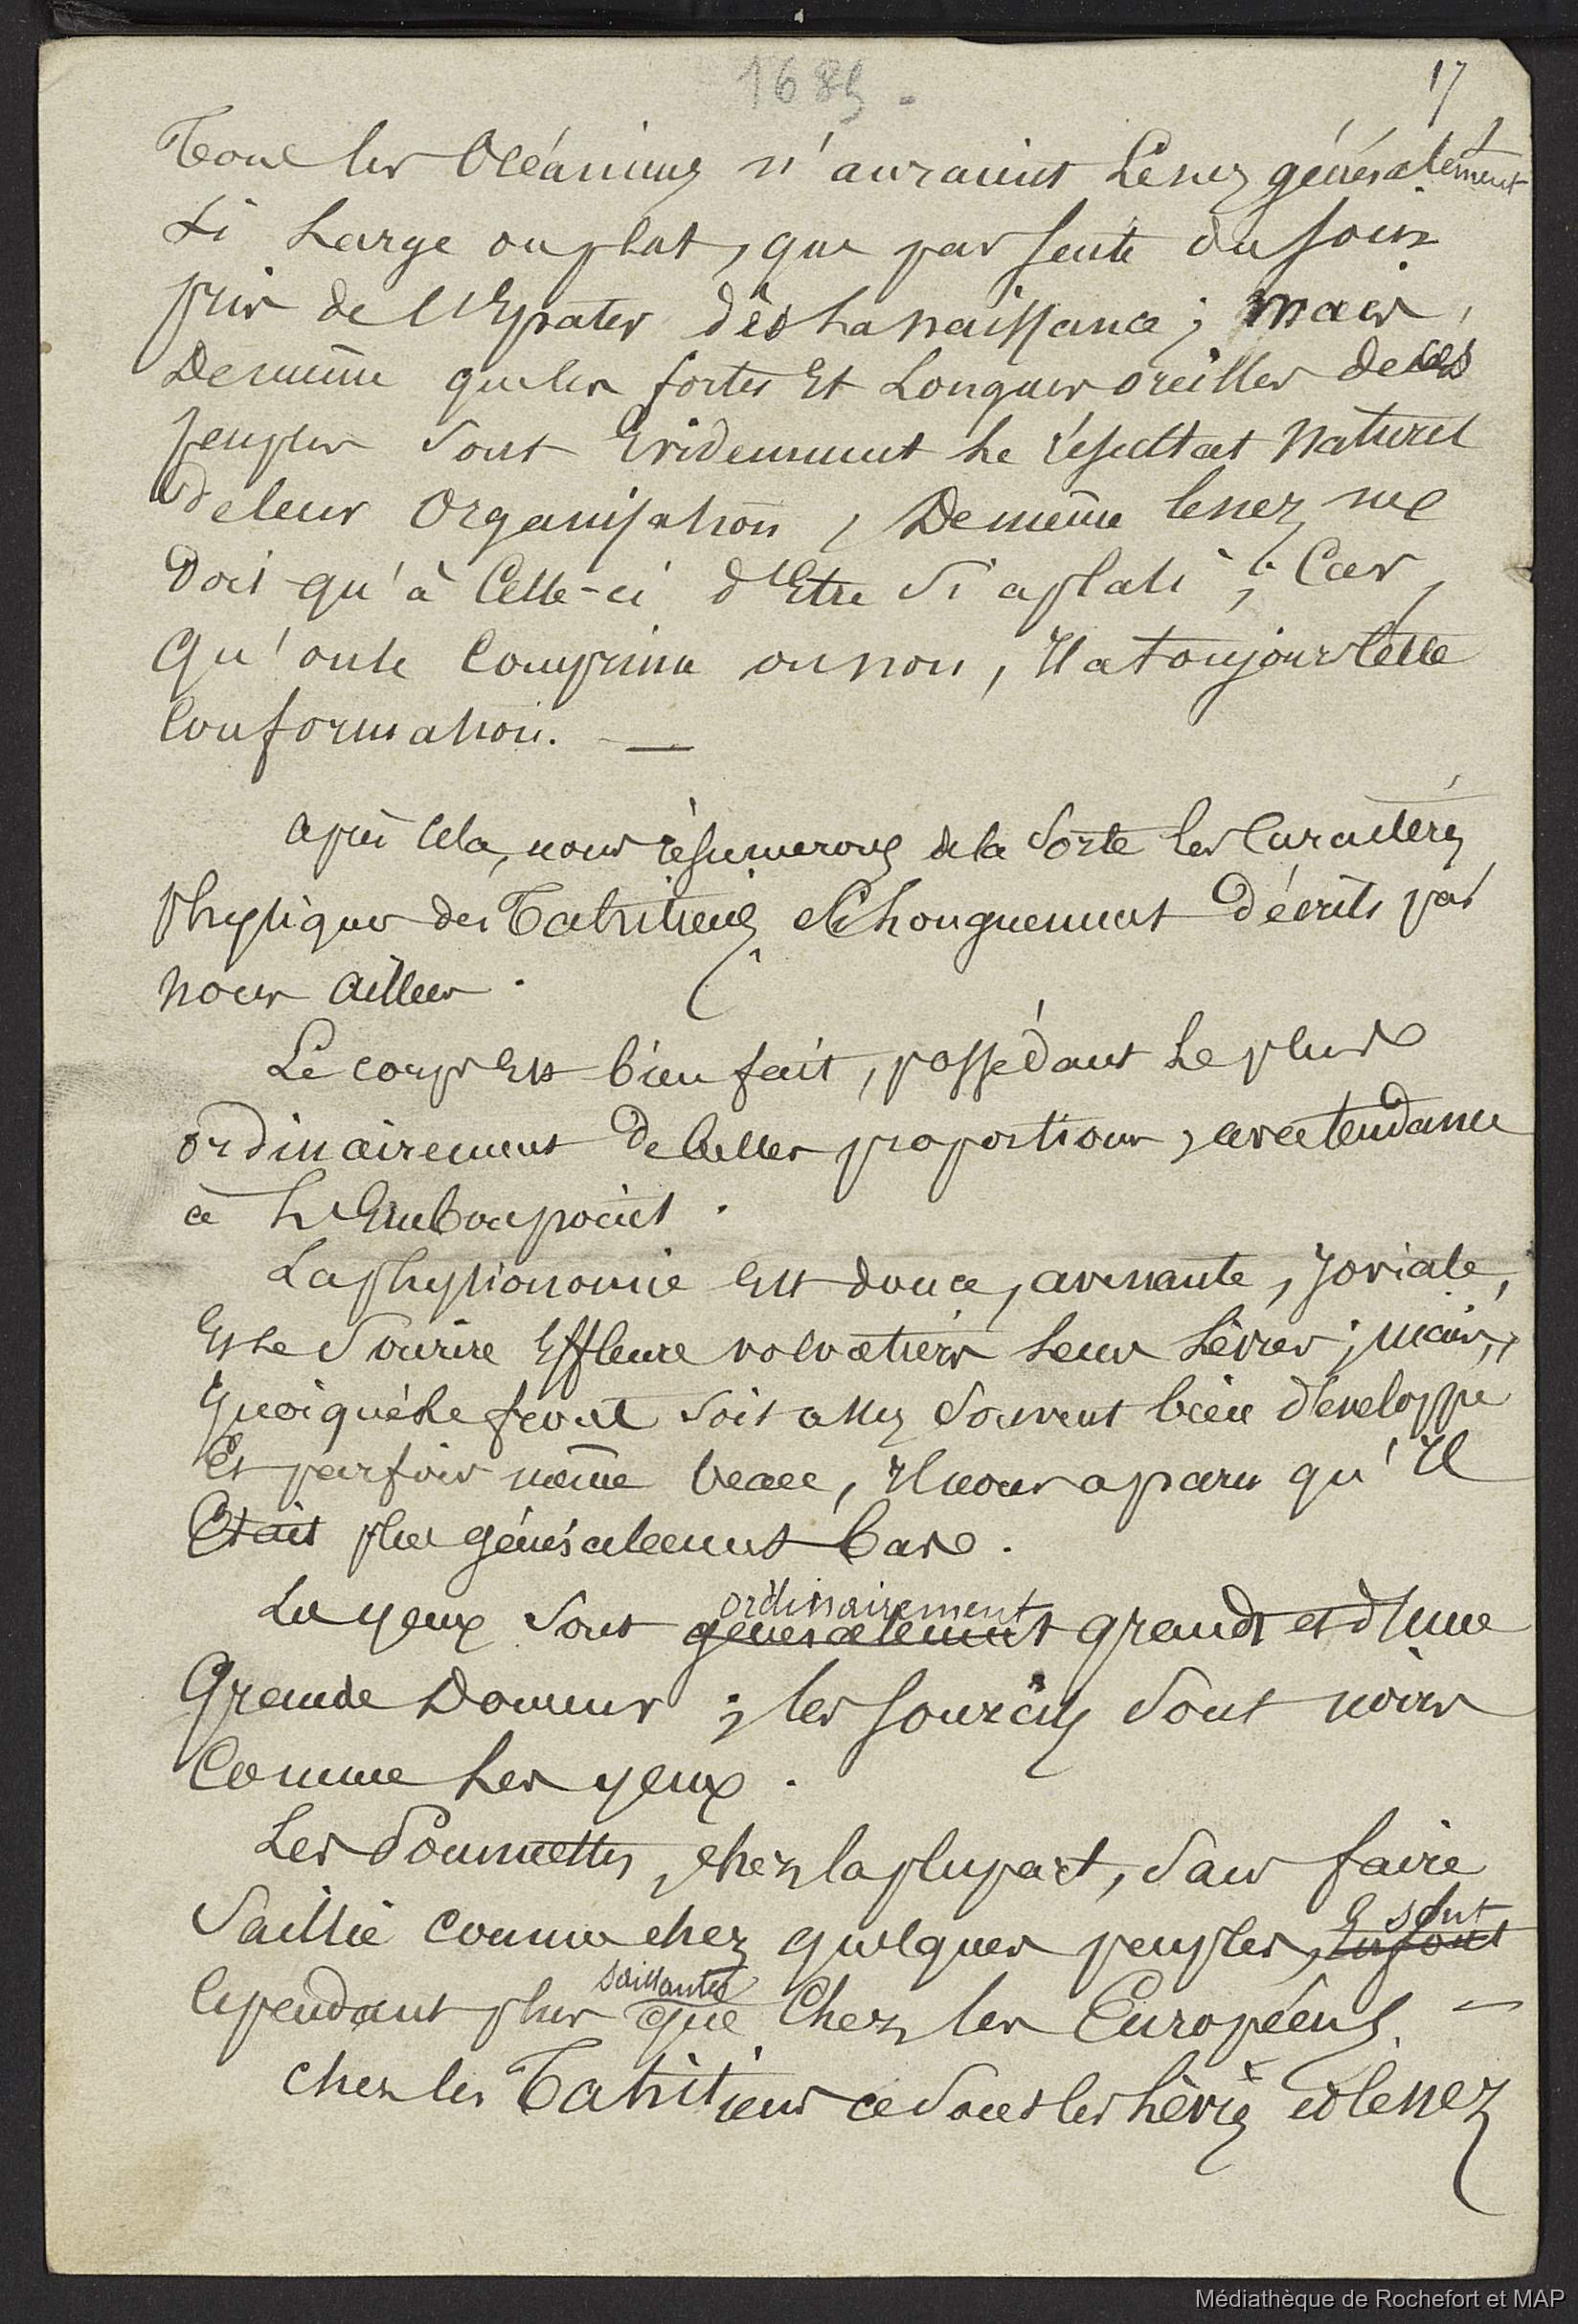 1685.
17
Tous les Océaniens n'auraient le nez généralement
si large ou plat, que par suite du soin
pris de l'Epater dès la naissance; mais,
De même que les fortes Et Longues oreilles de ces
peuples sont Evidemment le résultat Naturel
de leur Organisation, De même le nez ne
Doit qu'à Celle-ci d'Etre si aplati; Car,
Qu'on le Comprime ou non, Il a toujours cette
Conformation. —
après Cela, nous résumerons de la Sorte les Caractères
Physiques des Tahitiens, si longuement décrits par
nous ailleurs.
Le corps Est bien fait, possédant le plus
ordinairement De belles proportions, avec tendance
à L'Embonpoint.
La physionomie Est douce, avenante, Joviale,
Et le Sourire Effleure volontiers leurs Lèvres; mais,
Quoique le front soit assez Souvent bien développé
Et parfois même beau, Il nous a paru qu'Il
Etait plus généralement bas.
Les yeux Sont ordinairement
généralement grands et d'Une
Grande Douceur; les Sourcils Sont noirs
Comme les yeux.
Les Pommettes, chez la plupart, Sans faire
Saillie Comme chez quelques peuples, sont
Cependant plus saillantes que Chez les Européens. —
Chez les Tahitiens ce Sont les Lèvres et le nez
Médiathèque de Rochefort et MAP